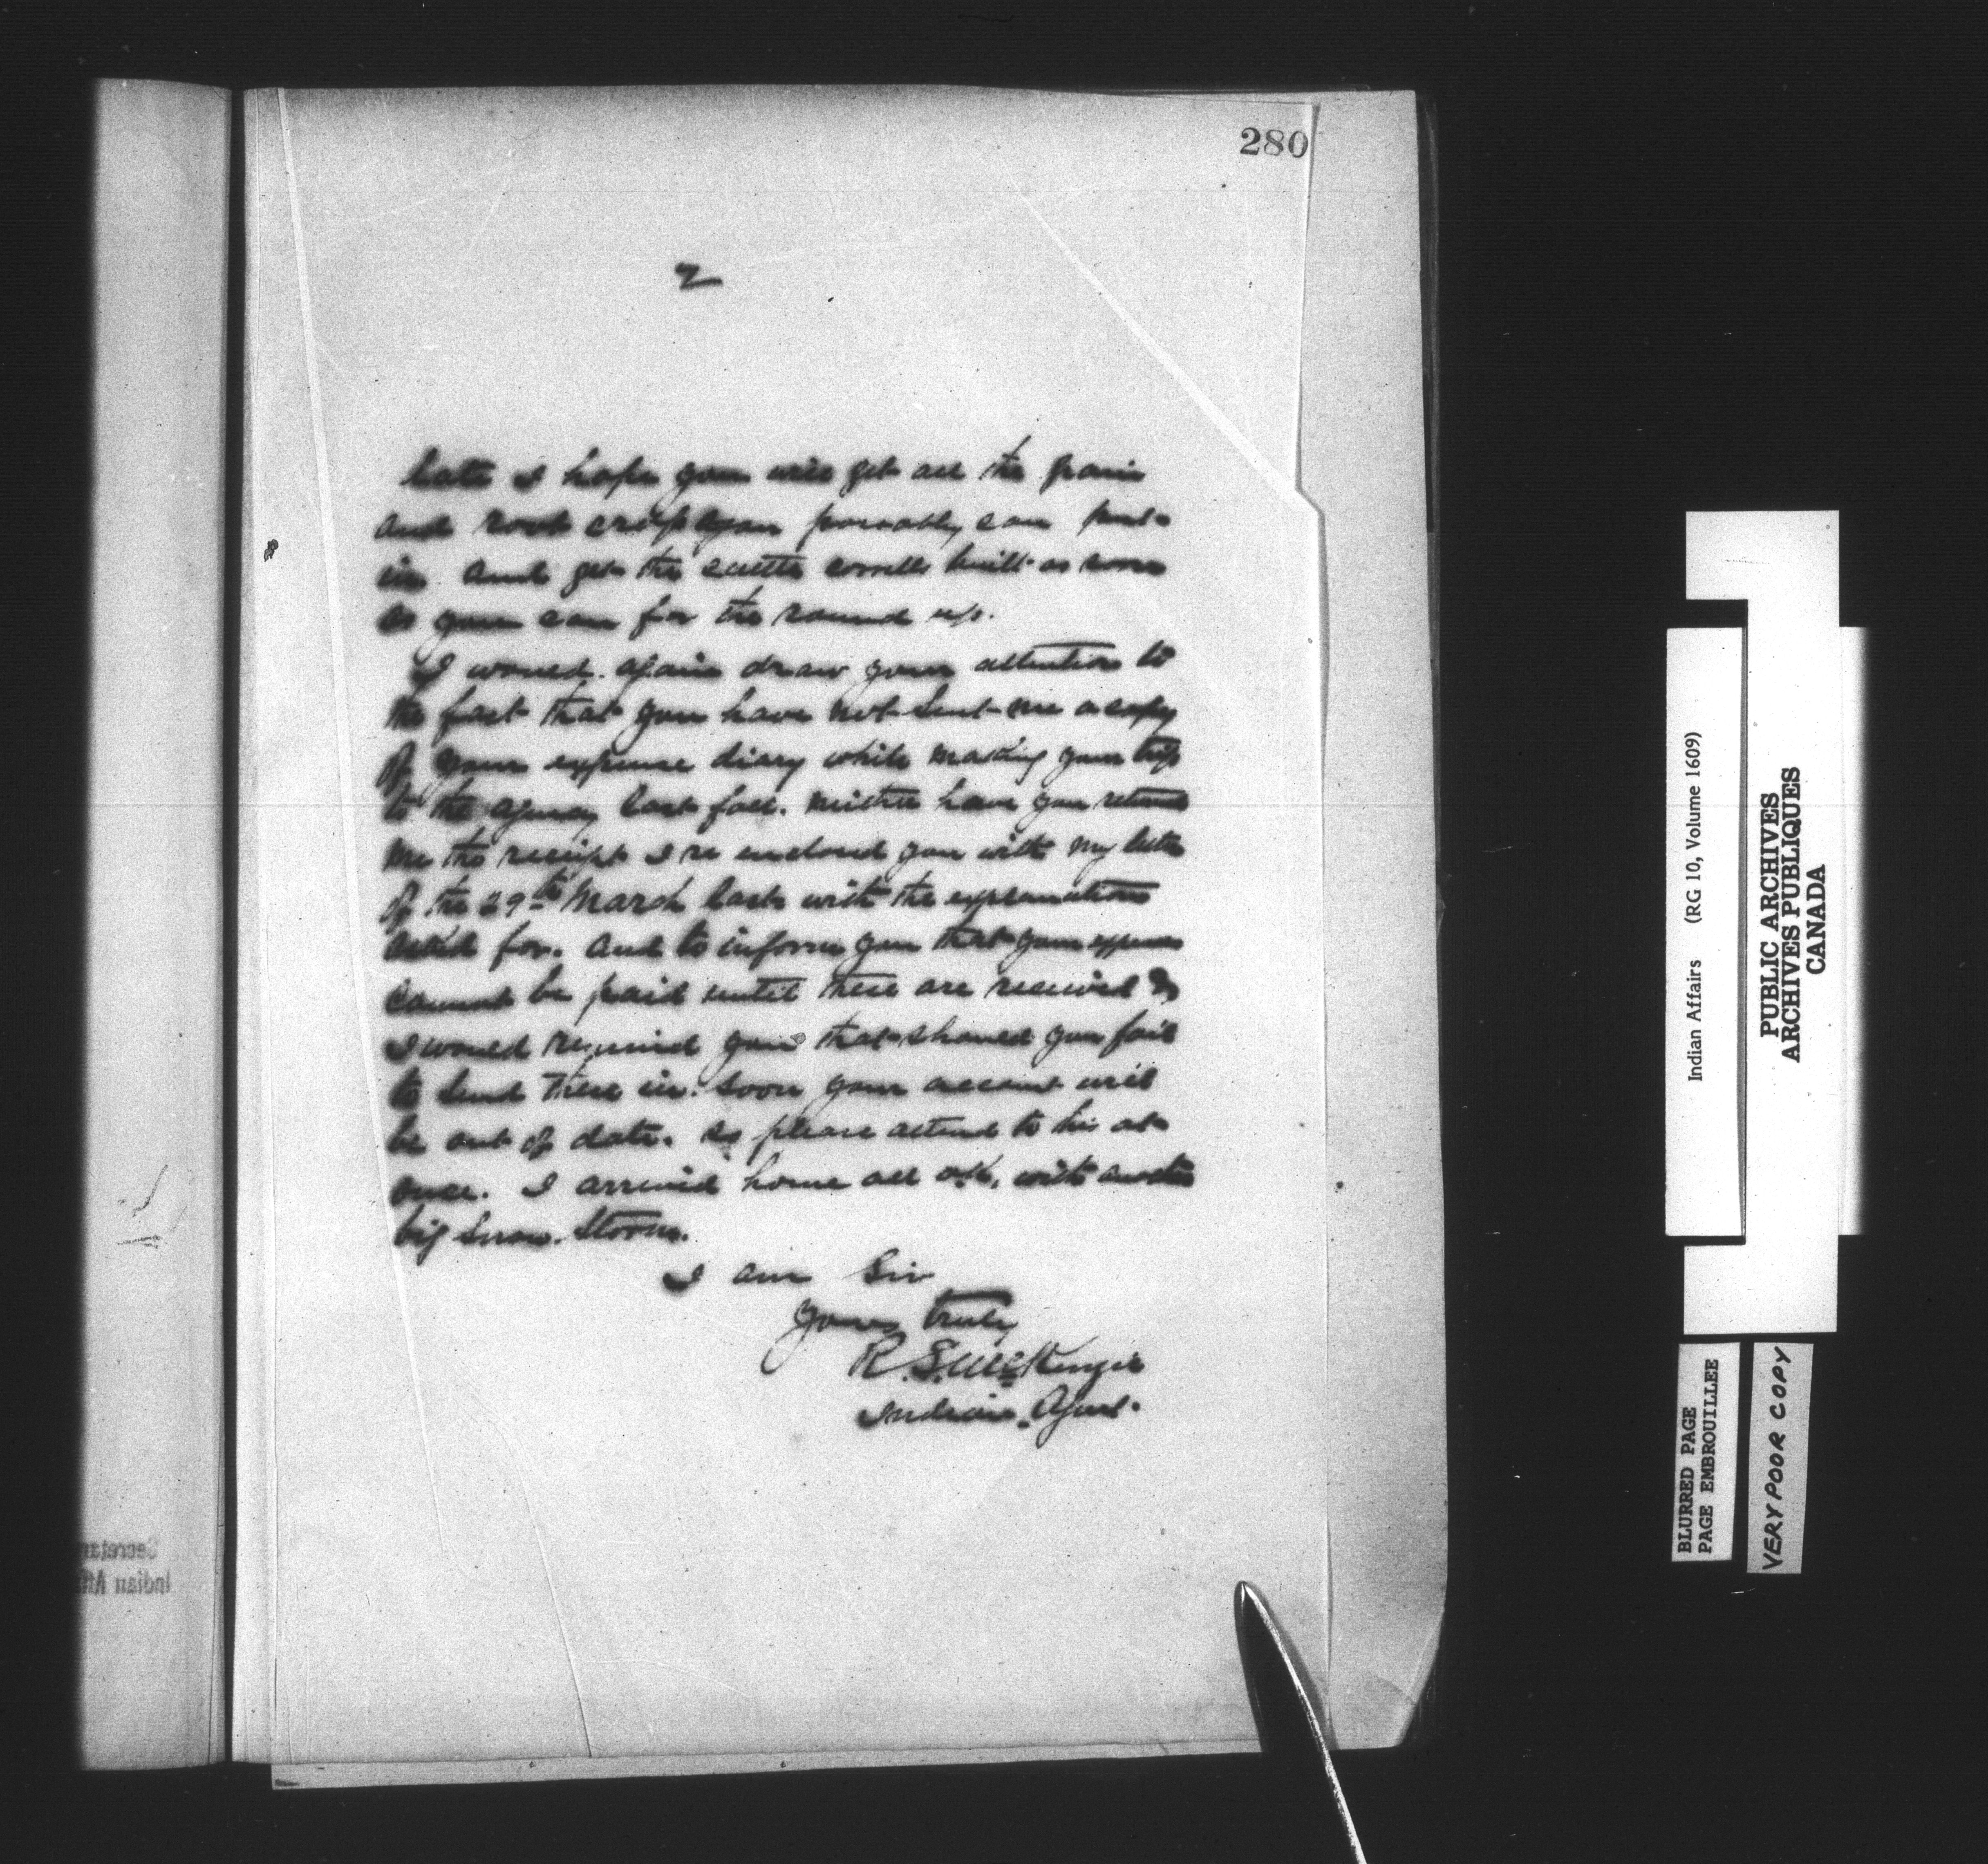 280
2
late I hope you will get all the grain
and root crop you possably can put
in. And get the cattle corrells built as soon
as you can for the round up.
I would. again draw your attention to
the fact that you have not sent me a copy
of your expense diary while making your trip
to the agency last fall. neither have you returned
me the receipt I re enclosed you with my letter
of the 29th March last with the explanations
asked for. And to inform you that your expenses
cannot be paid until these are received &
I would remind you that should you fail
to send these in. soon your account will
be out of date. so please attend to his at
once. I arrived home all o.k. with another
big snow. storm.
I am Sir
Yours truly
R. S. McKenzie
Indian. Agent.
Secretar
Indian Aff
Indian Affairs (RG 10, Volume 1609)
PUBLIC ARCHIVES
ARCHIVES PUBLIQUES
CANADA
BLURRED PAGE
PAGE EMBROUILLEE
VERY POOR COPY